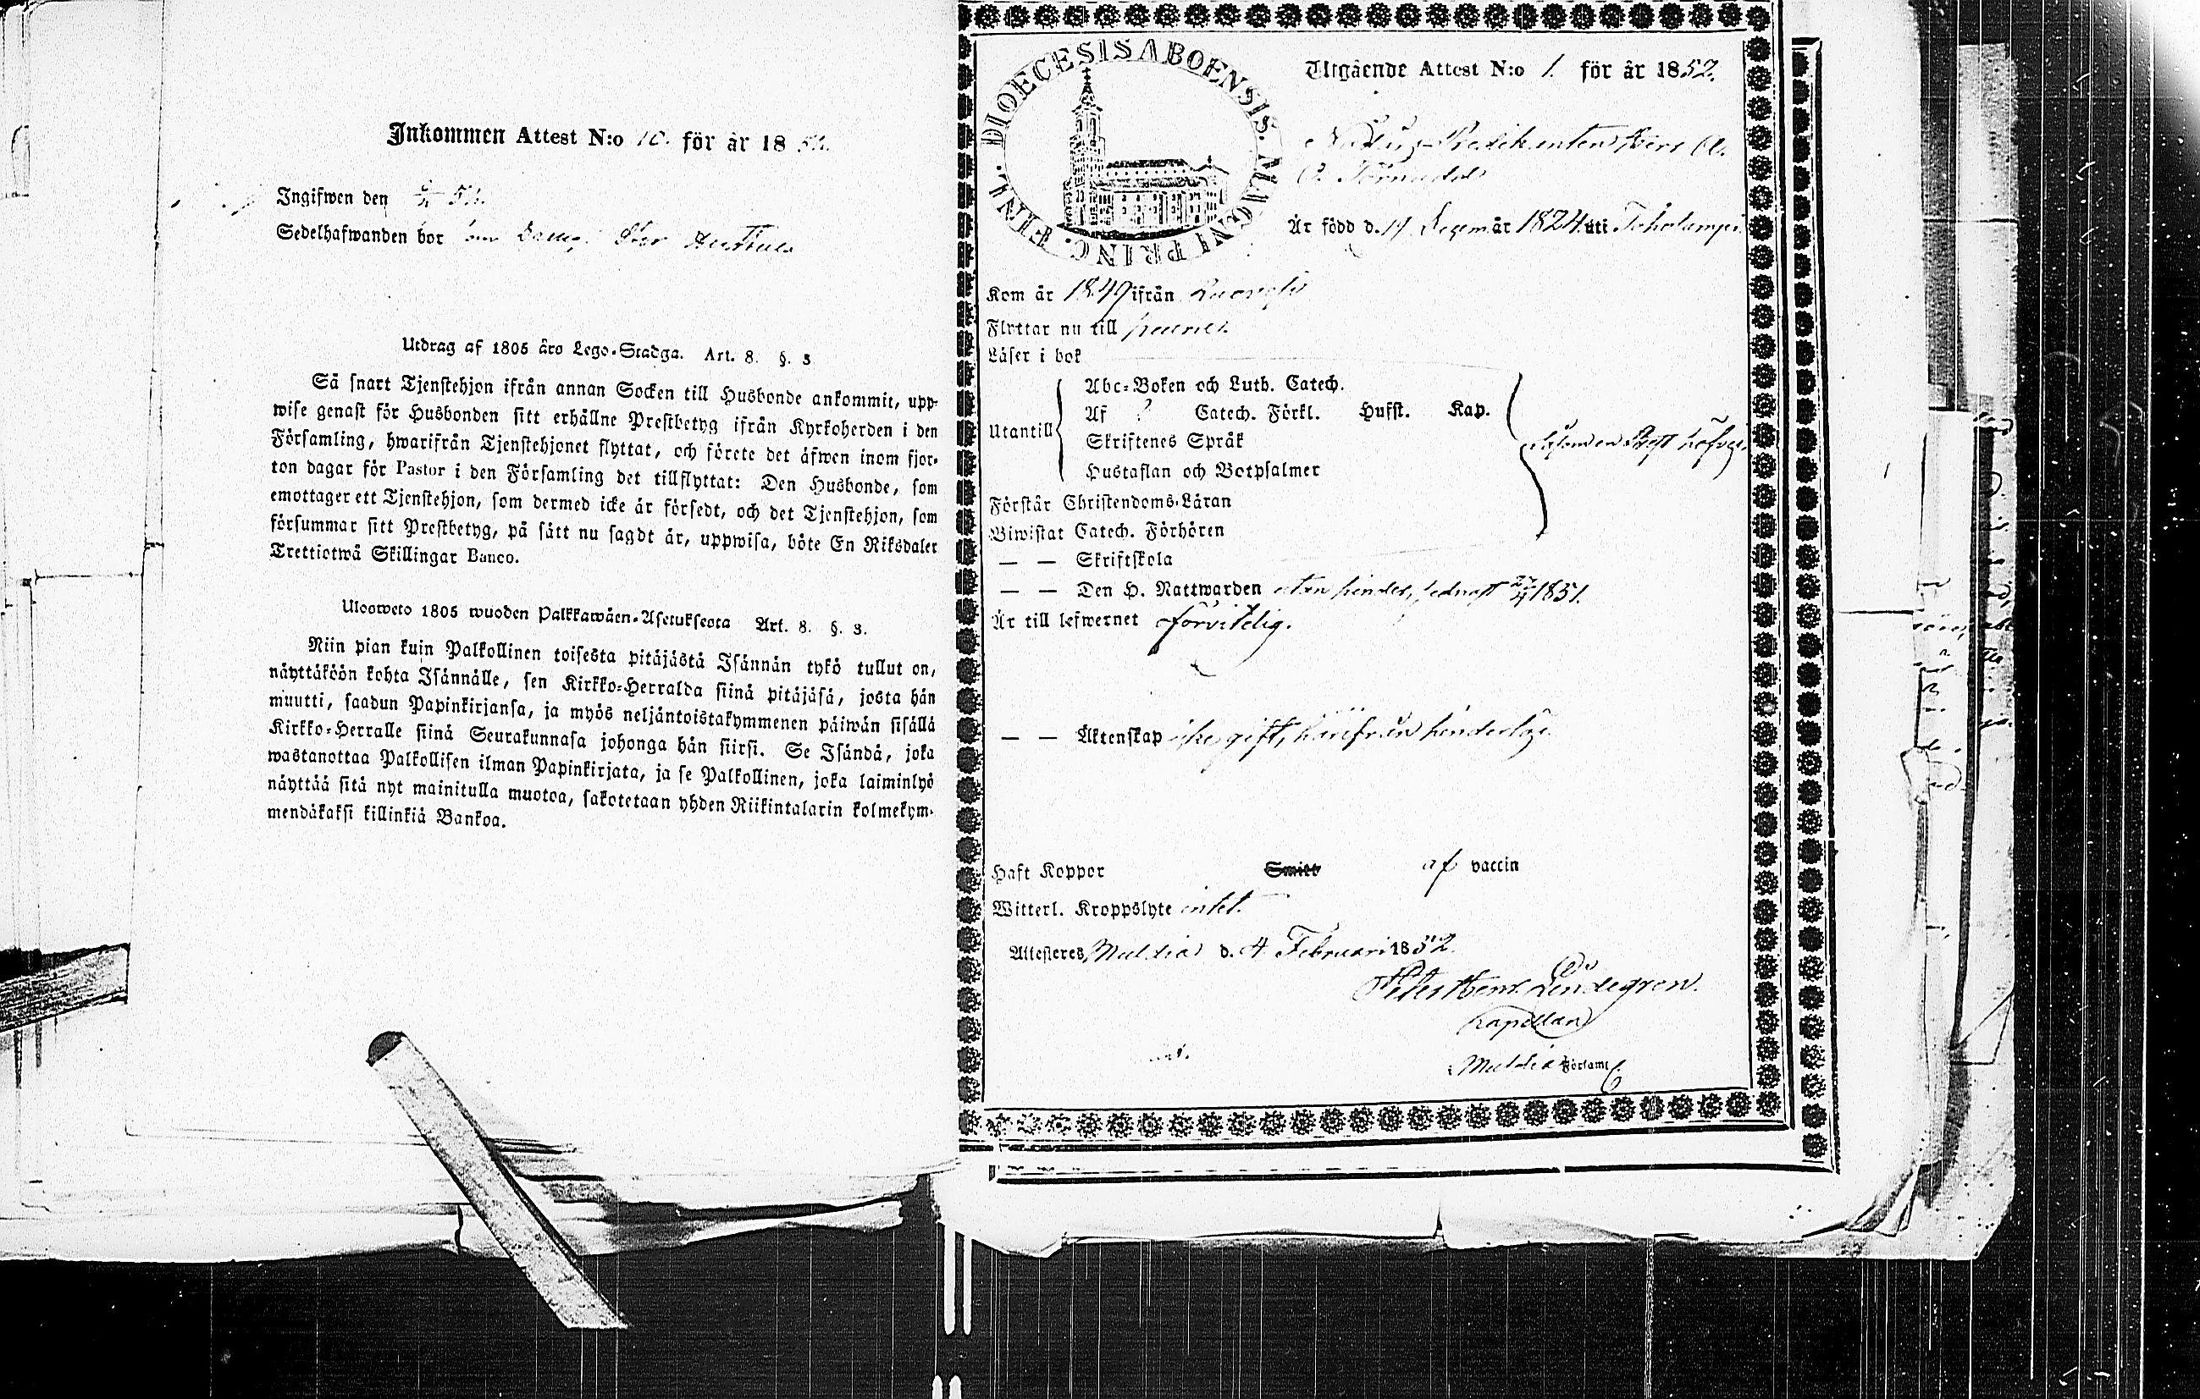 Inkommen Attest N:o 10. för år 1852.
Ingifwen den
Sedelhafwanden bor
Utdrag af 1805 års Lego-Stadga. Art. 8. §. 3
Så snart Tjenstehjon ifrån annan Socken till Husbonde ankommit, upp-
wise genast för Husbonden sitt erhållne Prestbetyg ifrån Kyrkoherden i den
Församling, hwarifrån Tjenstehjonet flyttat, och förete det äfwen inom fjor-
ton dagar för Pastor i den Församling det tillflyttat: Den Husbonde, som
emottager ett Tjenstehjon, som dermed icke är försedt, och det Tjenstehjon, som
försummar sitt Prestbetyg, på sätt nu sagdt är, uppwisa, böte En Riksdaler
Trettiotwå Skillingar Banco.
Ulosweto 1805 wuoden Palkkawäen-Asetuksesta Art. 8. §. 3.
Niin pian kuin Palkollinen toisesta pitäjästä Isännän tykö tullut on,
näyttäköön kohta Isännälle, sen Kirkko-Herralda siinä pitäjäsä, josta hän
muutti, saadun Papinkirjansa, ja myös neljäntoistakymmenen päiwän sisällä
Kirkko-Herralle siinä Seurakunnasa johonga hän siirsi. Se Isändä, joka
wastanottaa Palkollisen ilman Papinkirjata, ja se Palkollinen, joka laiminlyö
näyttää sitä nyt mainitulla muotoa, sakotetaan yhden Riikintalarin kolmekym-
mendäkaksi killinkiä Bankoa.
DIOECESIS ABOENSIS. MAGNI PRINC. FINL.
Utgående Attest N:o 1. för år 1852.
Predikanten Herr
Är född d. 17 Decem. år 1824 uti Toholampi.
Kom år 1849 ifrån
Flyttar nu till
Läser i bok
Utantill
Abc-Boken och Luth. Catech.
Af ? Catech. Förkl. Husst. Kap.
Skriftenes Språk
Hustaflan och Botpsalmer
Förstår Christendoms-Läran
Biwistat Catech. Förhören
— — Skriftskola
— — Den H. Nattwarden utan hinder, sednast 1851.
Är till lefwernet oförvitelig.
— — Äktenskap icke gift, härifrån hinderlös.
Haft Koppor Smitt af vaccin
Witterl. Kroppslyte intet.
Attesteras, Multia d. 4 Februari 1852.
Lindegren.
Kapellan
Multia Församl.